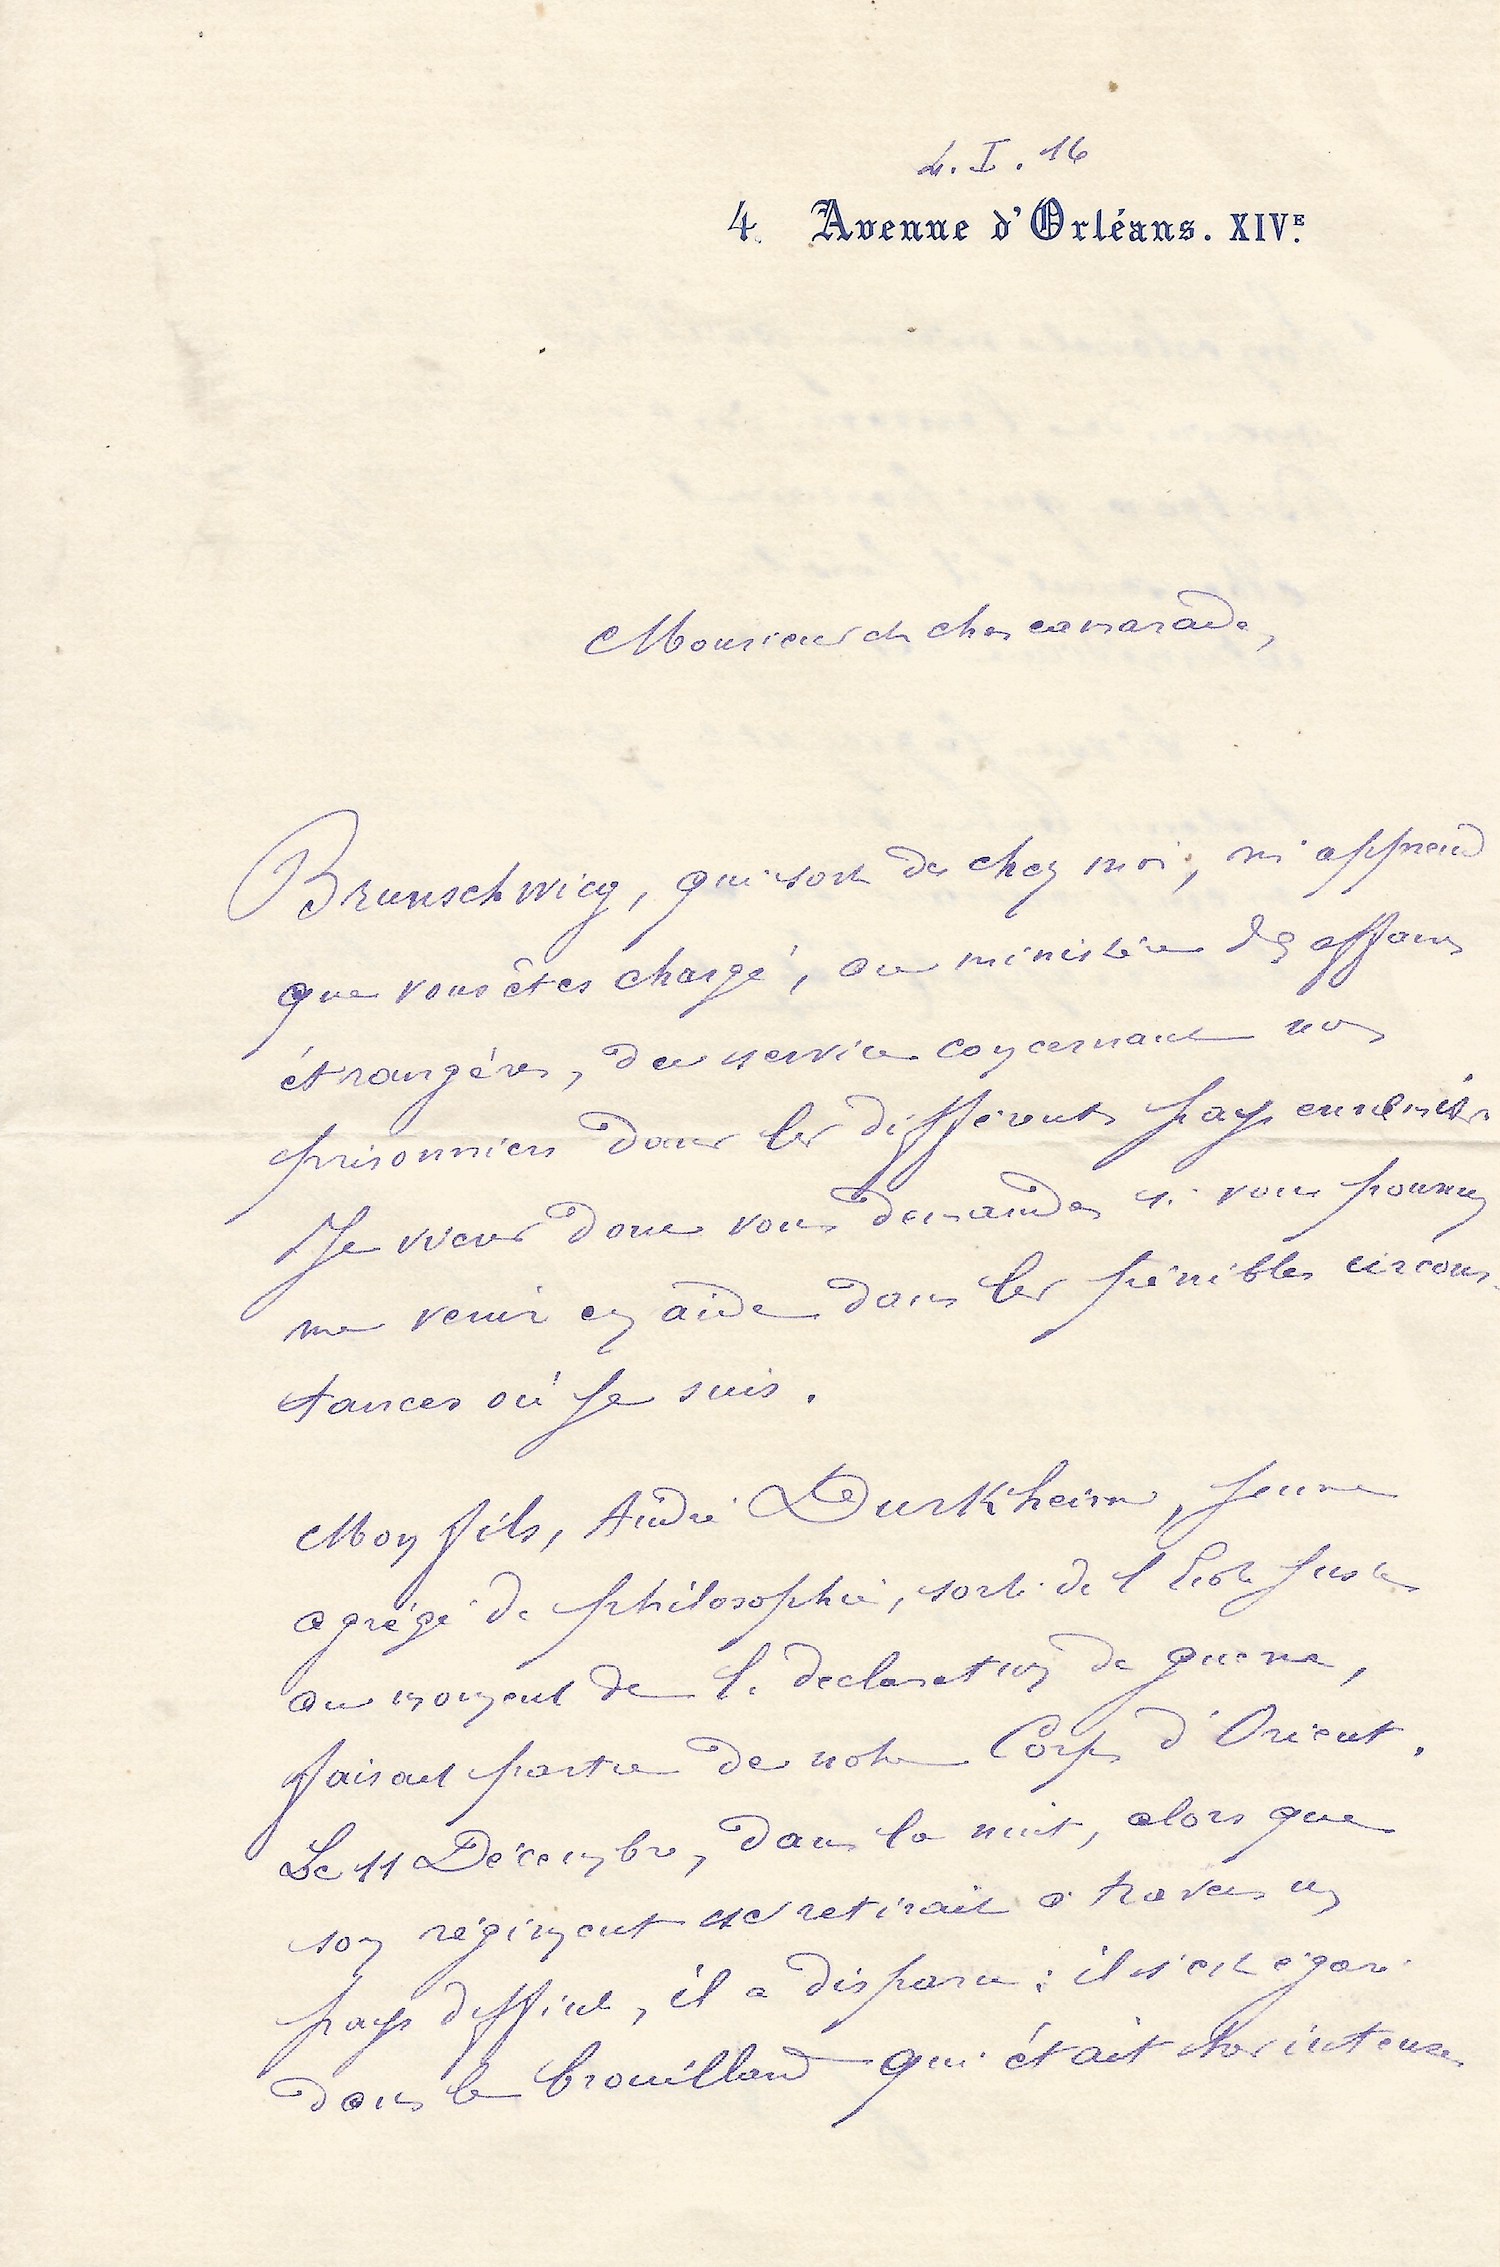 4. I. 16
4. Avenue d'Orléans. XIVE.
Monsieur et cher camarade,
Brunschwicg, qui sort de chez moi, m'apprend
que vous êtes chargé, au ministère des affaires
étrangères, du service concernant nos
prisonniers dans les différents pays ennemis.
Je viens donc vous demander si vous pourriez
me venir en aide dans les pénibles circons-
tances où je suis.
Mon fils, André Durkheim, jeune
agrégé de philosophie, sorti de l'Ecole juste
au moment de la declaration de guerre,
faisait partie de notre Corps d'Orient.
Le 11 Décembre, dans la nuit, alors que
son régiment se retirait à travers un
pays difficile, il a disparu ; il s'est égaré
dans le brouillard qui était très intense